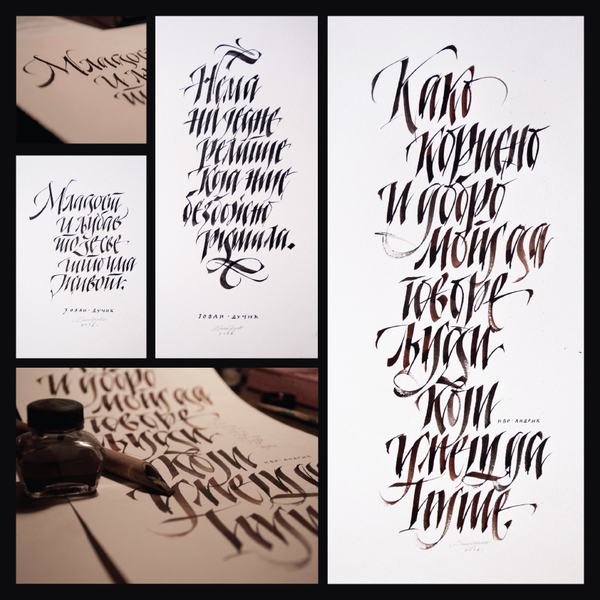 Младост
и љу
Младост
и љубав
то је све
што има
живот.
ЈОВАН · ДУЧИЋ
Нема
ни једне
религије
која није
безбожно
рушила.
ЈОВАН · ДУЧИЋ
Како
корисно
и добро
могу да
говоре
људи
који
ИВО · АНДРИЋ
умеју да
ћуте.
и добро
могу да
говоре
људи
који
ИВО · АНДРИЋ
умеју да
ћуте